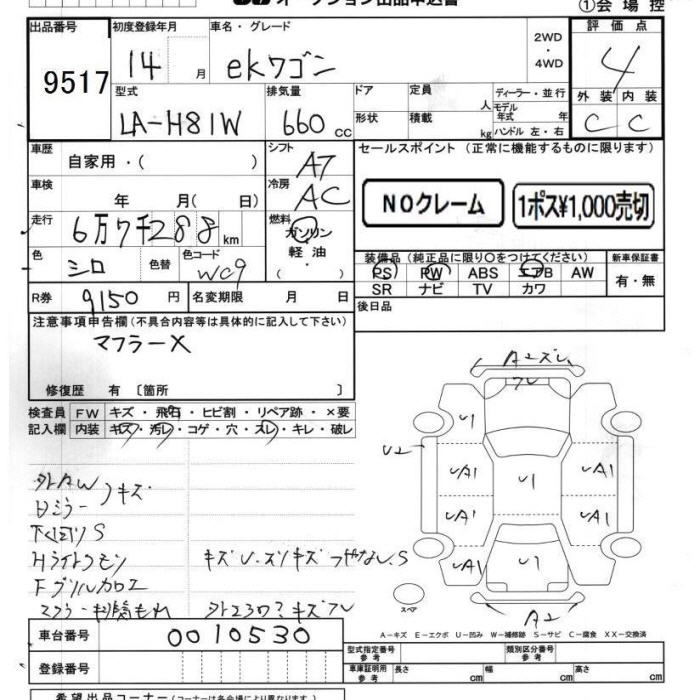 オークション出品申込書
①会場控
出品番号 初度登録年月 車名・グレード 2WD・4WD 評価点
9517 14 月 ekワゴン 4
型式 排気量 ドア 定員 人 ディーラー・並行 外装 内装
LA-H81W 660 cc 形状 積載 kg モデル年式 年 ハンドル 左・右 C C
車歴 自家用・( ) シフト AT セールスポイント (正常に機能するものに限ります)
車検 年 月( 日) 冷房 AC NOクレーム 1ポス¥1,000売切
走行 6万7千288 km 燃料 ガソリン 軽油・( )
色 シロ 色替 色コード WC9
装備品 (純正品に限り○をつけてください) 新車保証書
PS PW ABS エアB AW 有・無
SR ナビ TV カワ
R券 9150 円 名変期限 月 日 後日品
注意事項申告欄 (不具合内容等は具体的に記入して下さい)
マフラーX
修復歴 有 〔箇所 〕
検査員 FW キズ・飛石・ヒビ割・リペア跡・×要
記入欄 内装 キズ・汚レ・コゲ・穴・スレ・キレ・破レ
A2ズレ
フレ
U1
U2
UA1 U1 UA1
UA1 UA1
UA1 U1
A2
スペア
キズ
S
Hライトクモリ
A-キズ E-エクボ U-凹み W-補修跡 S-サビ C-腐食 XX-交換済
車台番号 0010530
型式指定番号 参考 類別区分番号 参考
登録番号
車庫証明用 参考 長さ cm 幅 cm 高さ cm
希望出品コーナー (コーナー名は各会場により異なります。)